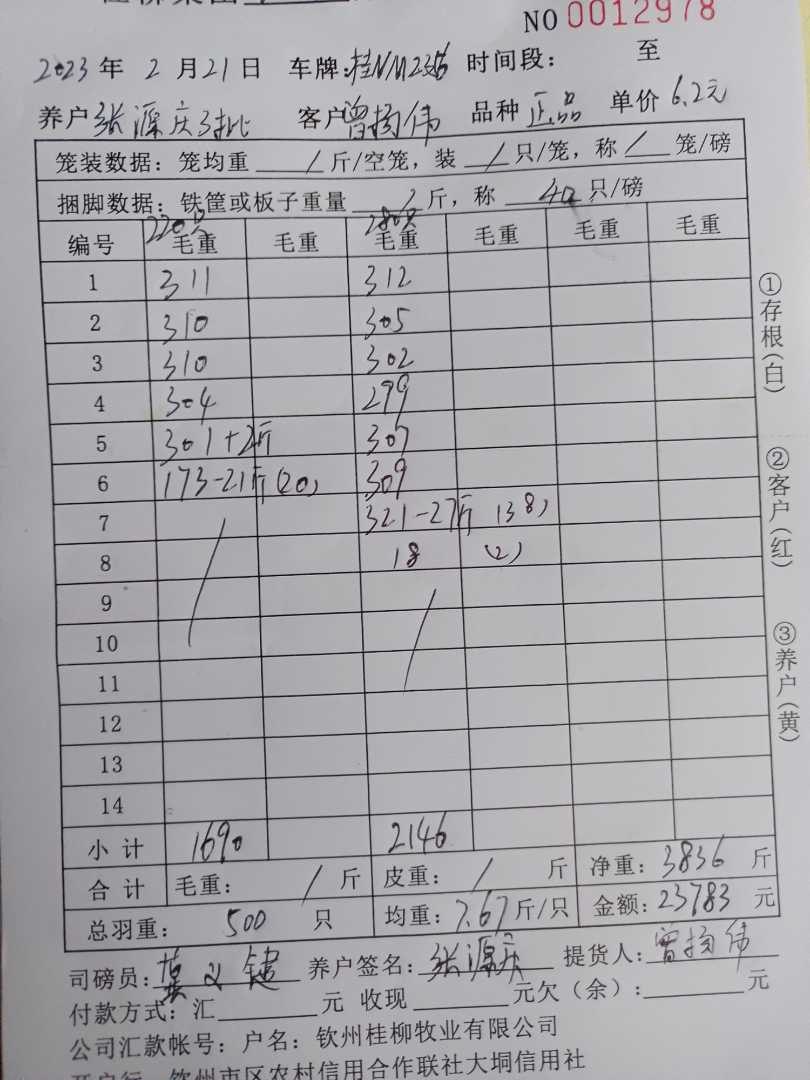 NO 0012978
2023 年 2 月 21 日 车牌:桂NM2356 时间段: 至
养户 张源庆3批 客户 曾扬伟 品种 正品 单价 6.2元
笼装数据: 笼均重 / 斤/空笼, 装 / 只/笼, 称 / 笼/磅
捆脚数据: 铁筐或板子重量 / 斤, 称 40 只/磅
220只 280只
编号 毛重 毛重 毛重 毛重 毛重 毛重
1 311 312
2 310 305
3 310 302
4 304 299
5 301+2斤 307
6 173-21斤(20) 309
7 321-27斤 (38)
8 18 (2)
9
10
11
12
13
14
小 计 1690 2146
合 计 毛重: / 斤 皮重: / 斤 净重: 3836 斤
总羽重: 500 只 均重: 7.67 斤/只 金额: 23783 元
司磅员: 养户签名: 张源庆 提货人: 曾扬伟
付款方式: 汇 元 收现 元欠(余): 元
公司汇款帐号: 户名: 钦州桂柳牧业有限公司
开户行 钦州市区农村信用合作联社大垌信用社
①存根(白)
②客户(红)
③养户(黄)